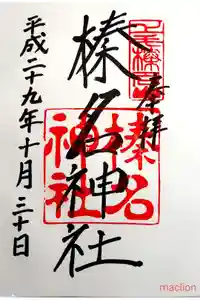 奉拝
榛名神社
榛名
神社
平成二十九年十月三十日
maclion